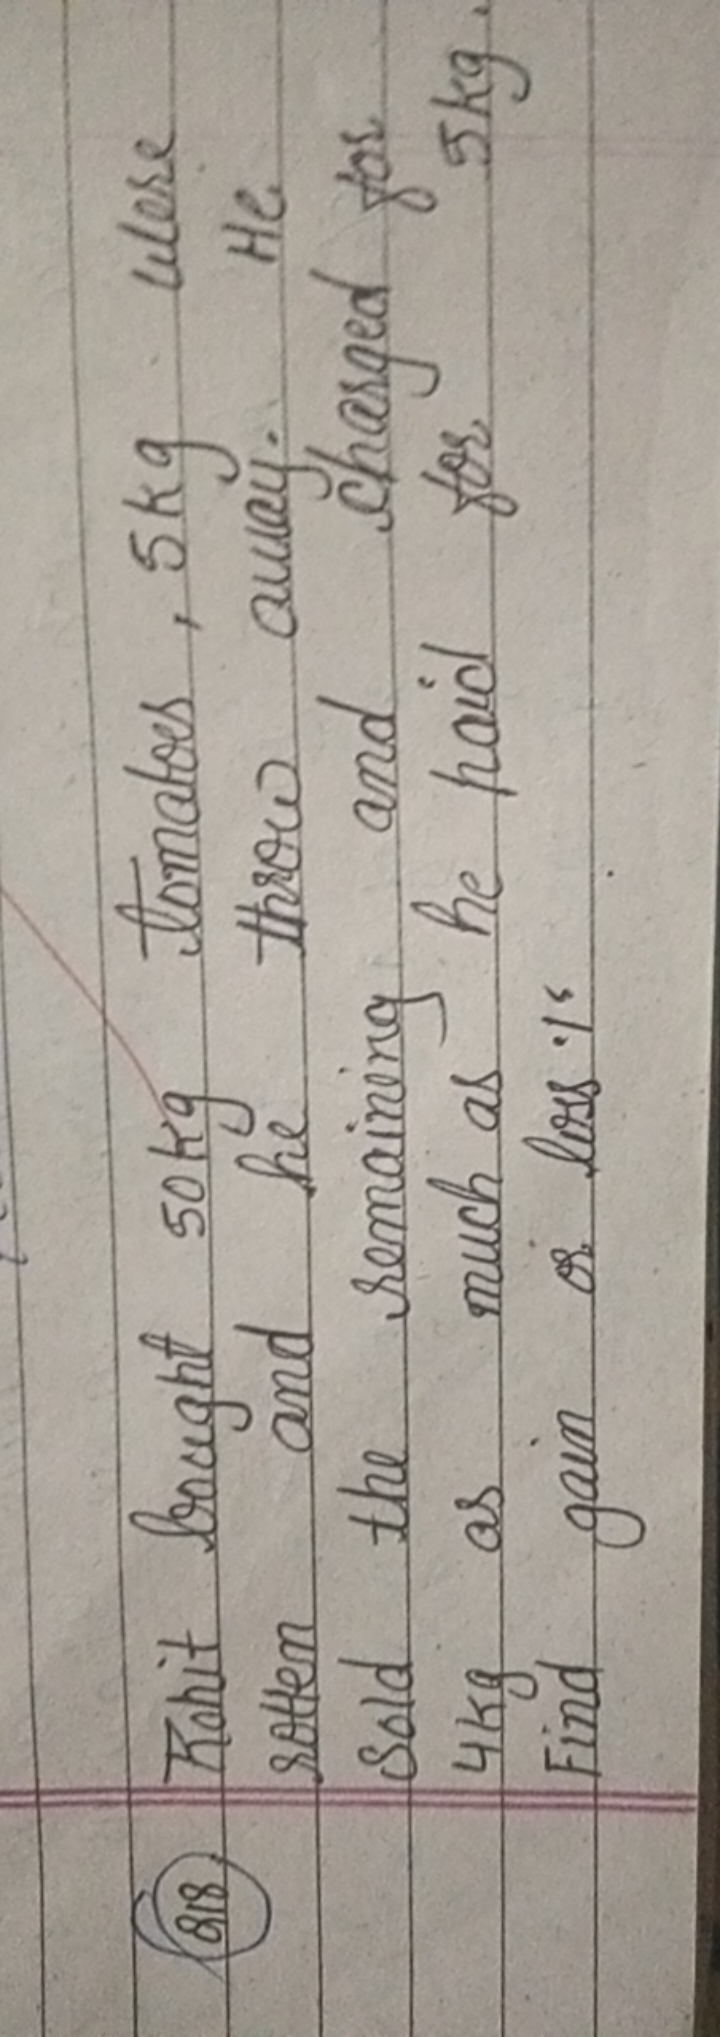 218 Rohit bought 50kg tomatoes, 5kg were
rotten and he throw away. He
Sold the remaining and charged for
4kg as much as he paid for 5kg.
Find gain or loss %